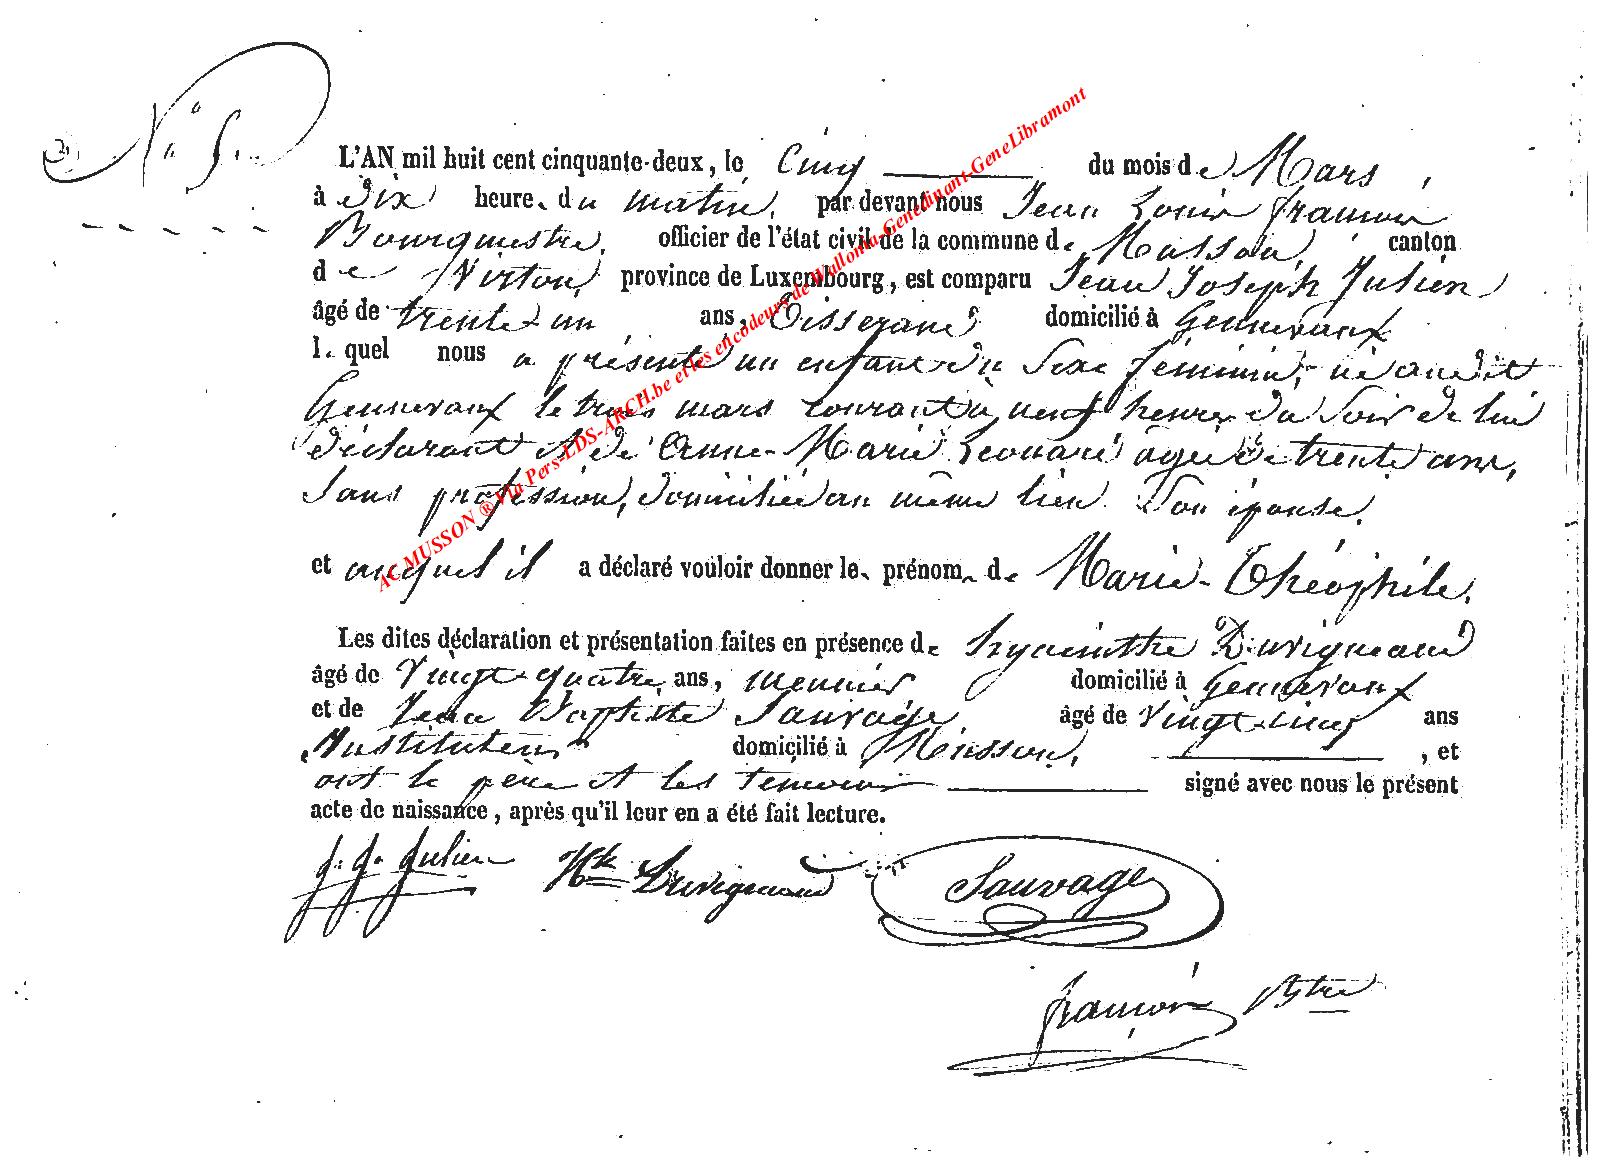 N° 5.
L'AN mil huit cent cinquante-deux, le Cinq du mois de Mars,
à dix heures du matin, par devant nous Jean Louis françois
Bourgmestre, officier de l'état civil de la commune de Musson, canton
de Virton, province de Luxembourg, est comparu Jean Joseph Julien
âgé de trente-un ans, Tisserand domicilié à Gennevaux
lequel nous a présenté un enfant du Sexe féminin, né audit
Gennevaux le trois mars courant à neuf heures du Soir de lui
déclarant et de Anne-Marie Léonard âgée de trente ans,
Sans profession, domiciliée au même lieu Son épouse.
et auquel il a déclaré vouloir donner les prénoms de Marie-Théophile.
Les dites déclaration et présentation faites en présence de hyacinthe Duvigneaud
âgé de Vingt-quatre ans, meunier domicilié à Gennevaux
et de Jean Baptiste Sauvage âgé de Vingt-cinq ans
Instituteur domicilié à Musson, , et
ont le père et les témoins signé avec nous le présent
acte de naissance, après qu'il leur en a été fait lecture.
J. J. Julien Hte Duvigneaud Sauvage
françois Bgtre
AC MUSSON ® Via Pers-LDS-ARCH.be et les encodeurs de Wallonia-Genedinant-GeneLibramont